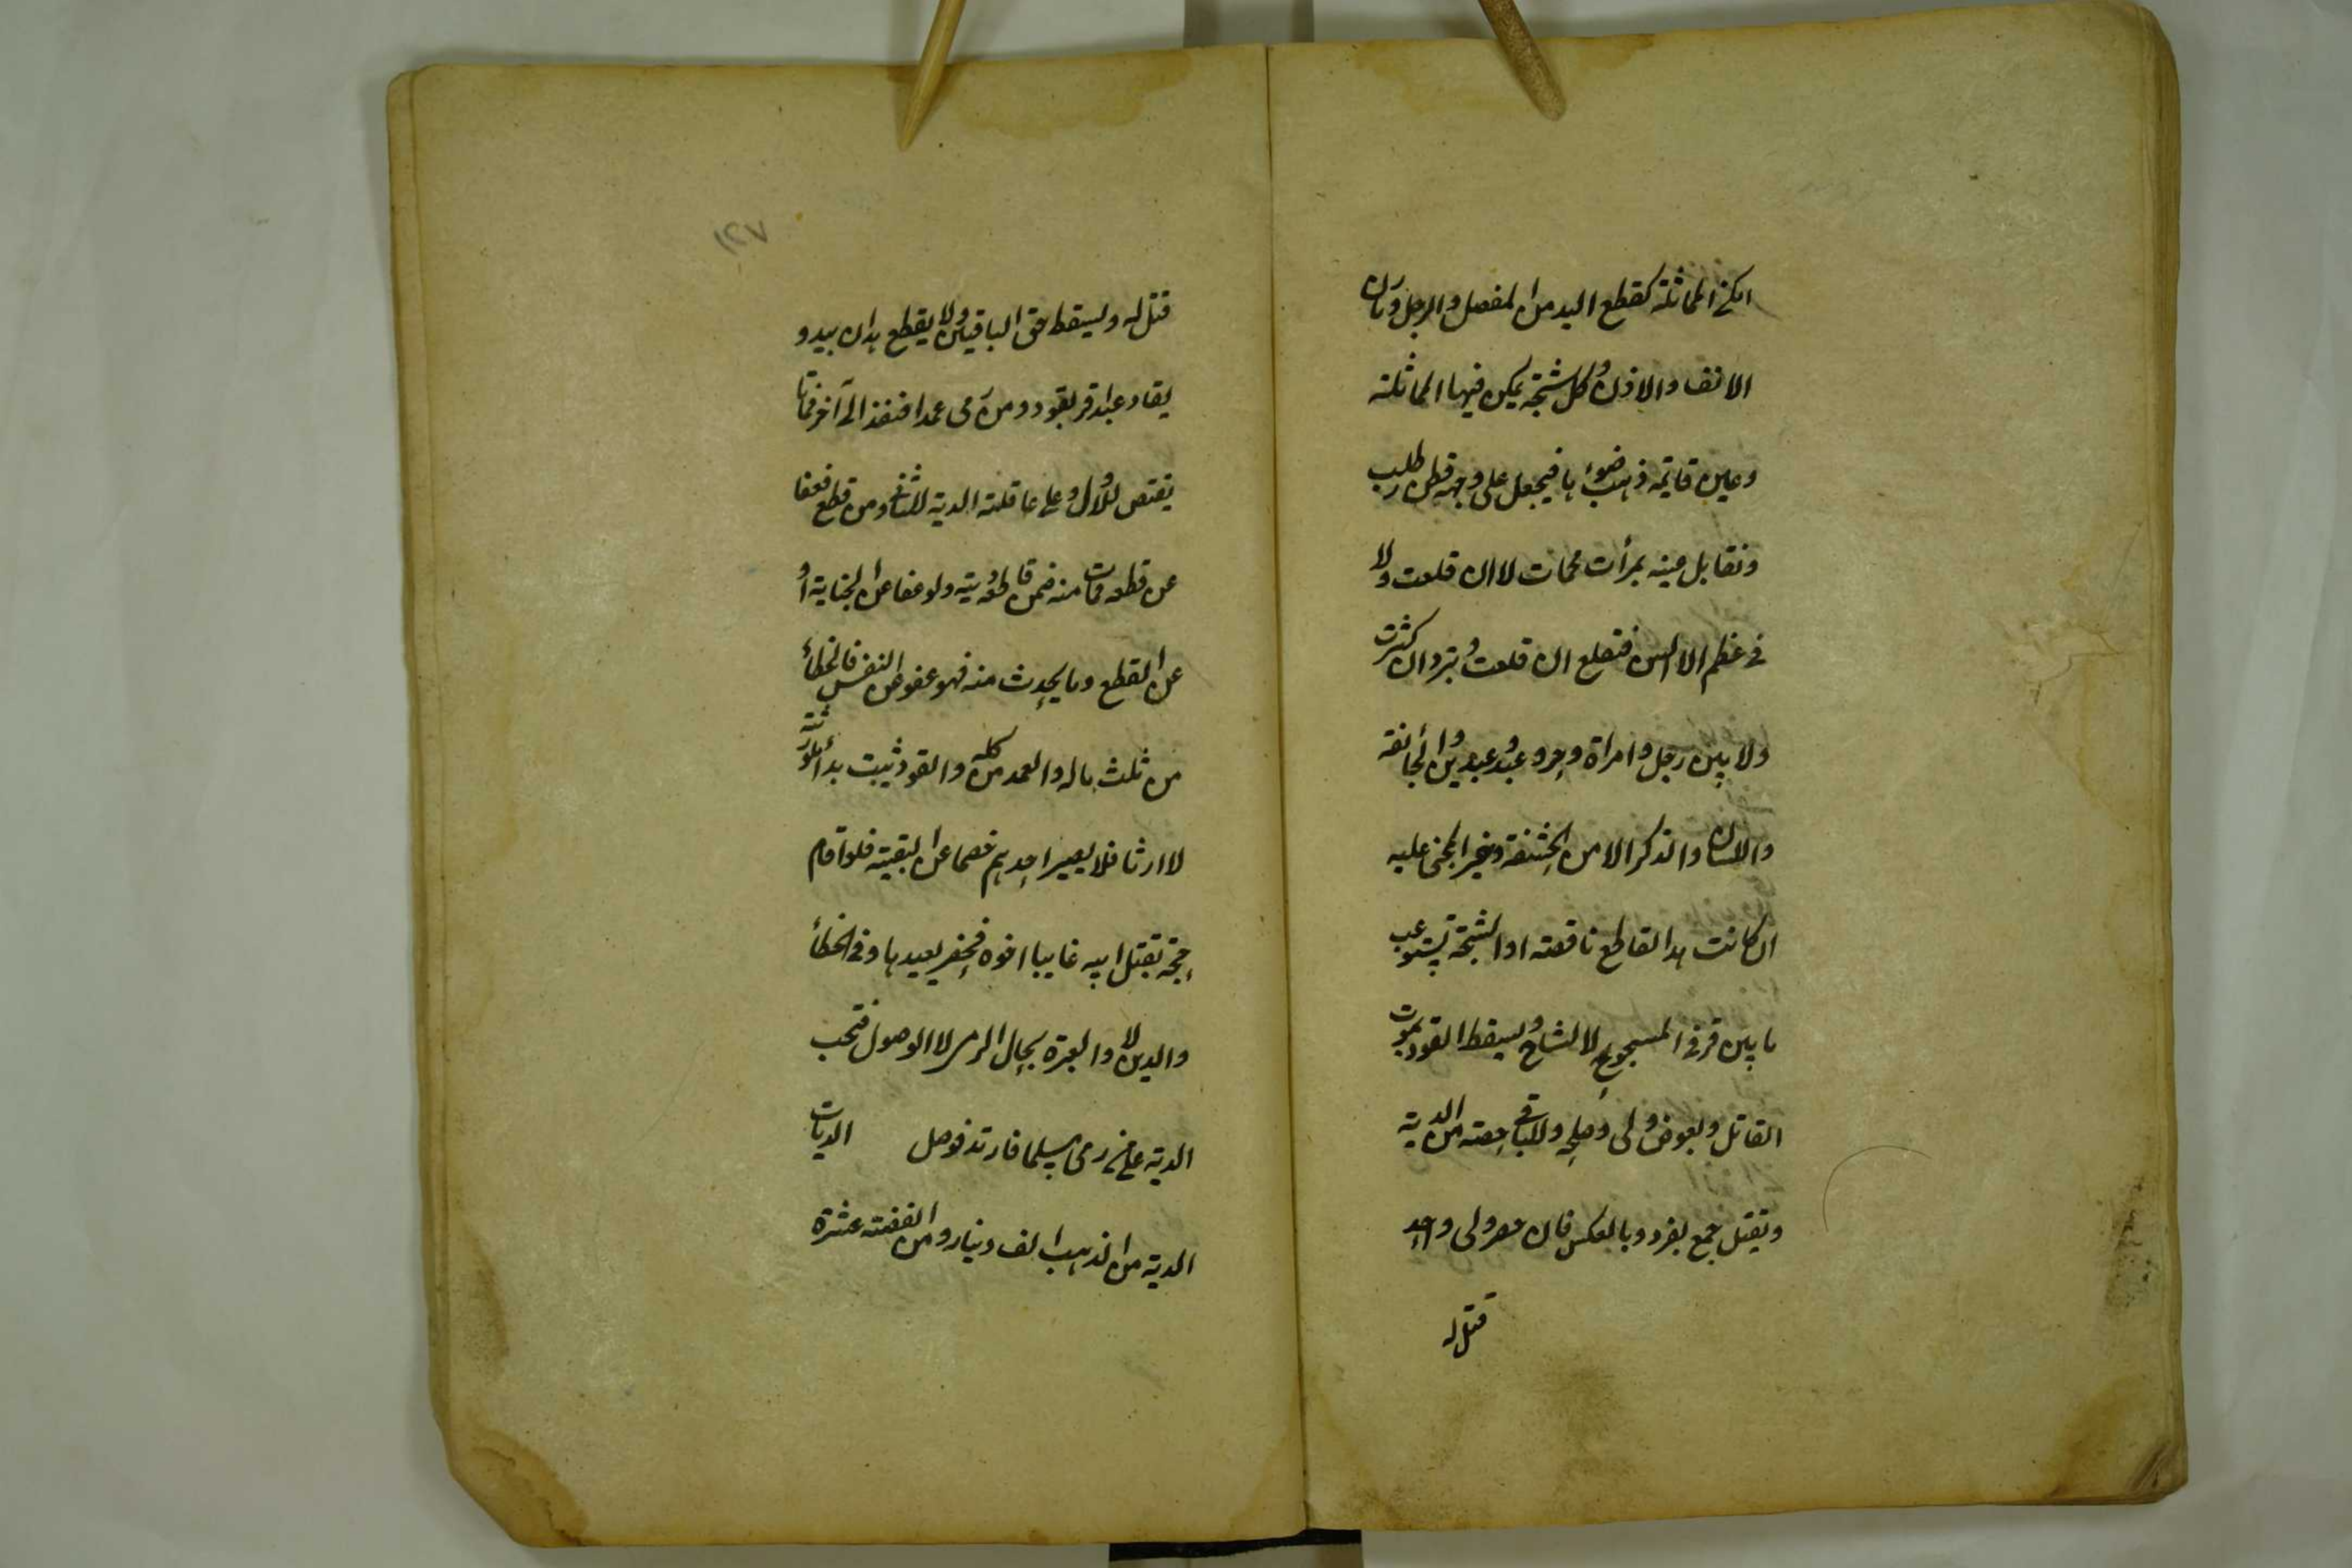 امكن المماثلة كقطع اليد من المفصل والرجل ومارن
الانف والاذن وكل شجة يمكن فيها المماثلة
وعين قايمة ذهب ضوءها فيجعل على وجهه قطن رطب
وتقابل عينه بمرأت محمات لا ان قلعت ولا
فى عظم الا السن فتقلع ان قلعت وتبرد ان كسرت
ولا بين رجل وامراة وحر وعبد وعبدين والجائفة
واللسان والذكر الا من الحشفة وخير المجنى عليه
ان كانت يد القاطع ناقصة او الشجة تستوعب
ما بين قرنى المشجوج لا الشاج ويسقط القود بموت
القاتل وبعفو ولى وصلحه وللباقى حصته من الدية
ويقتل جمع بفرد وبالعكس فان حضر ولى واحد
قتل له
١٤٧
قتل له ويسقط حق الباقين ولا يقطع يدان بيد و
يقاد عبد اقر بقود ومن رمى عمدا فنفذ الى آخر فماتا
يقتص للاول وعلى عاقلته الدية للثانى ومن قطع فعفا
عن قطعه فمات منه ضمن قاطعه ديته ولو عفا عن الجناية او
عن القطع وما يحدث منه فهو عفو عن النفس فالخطأ
من ثلث ماله والعمد من كله والقود ثبت بدأ للورثة
لا ارثا فلا يصير احدهم خصما عن البقية فلو اقام
حجة بقتل ابيه غايبا اخوه فحضر يعيدها وفى الخطأ
والدين لا والعبرة بحال الرمى لا الوصول فتجب
الدية على من رمى مسلما فارتد فوصل الديات
الدية من الذهب الف دينار ومن الفضة عشرة